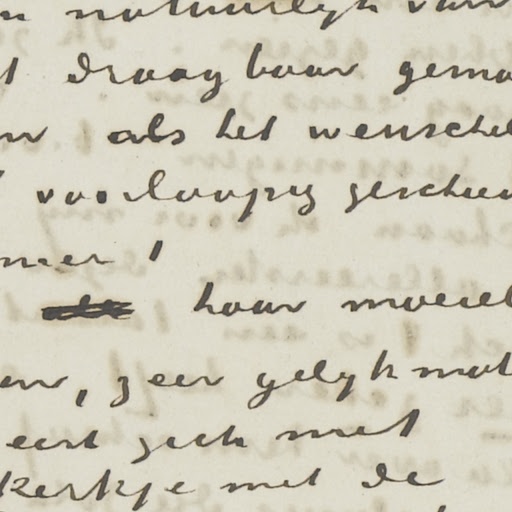 n natuurlyk van
t draagbaar gema
n als het wensche
voorloopig gescheu
meer!
haar moeiel
en, zeer gelykmat
eert zich met
kerkje met de